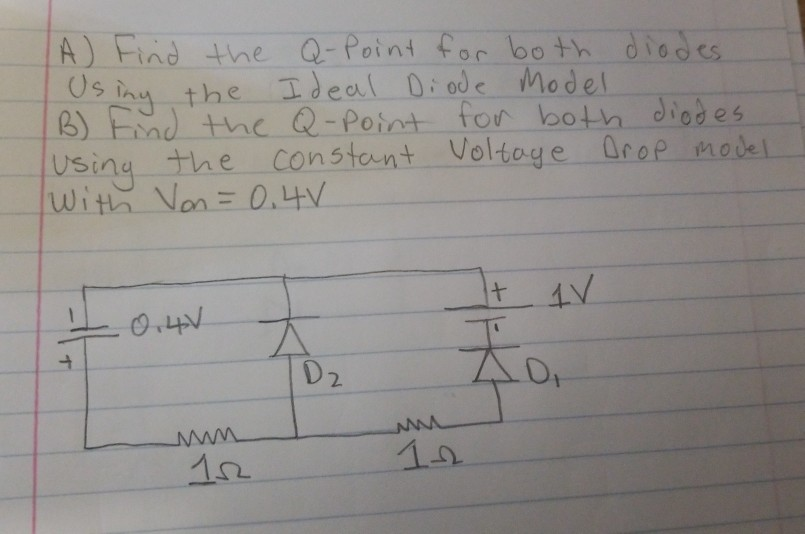 A) Find the Q-Point for both diodes
Using the Ideal Diode Model
B) Find the Q-Point for both diodes
using the constant Voltage Drop model
With Von = 0.4V
- 0.4V
+
D2
+ 1V
-
D1
1Ω
1Ω